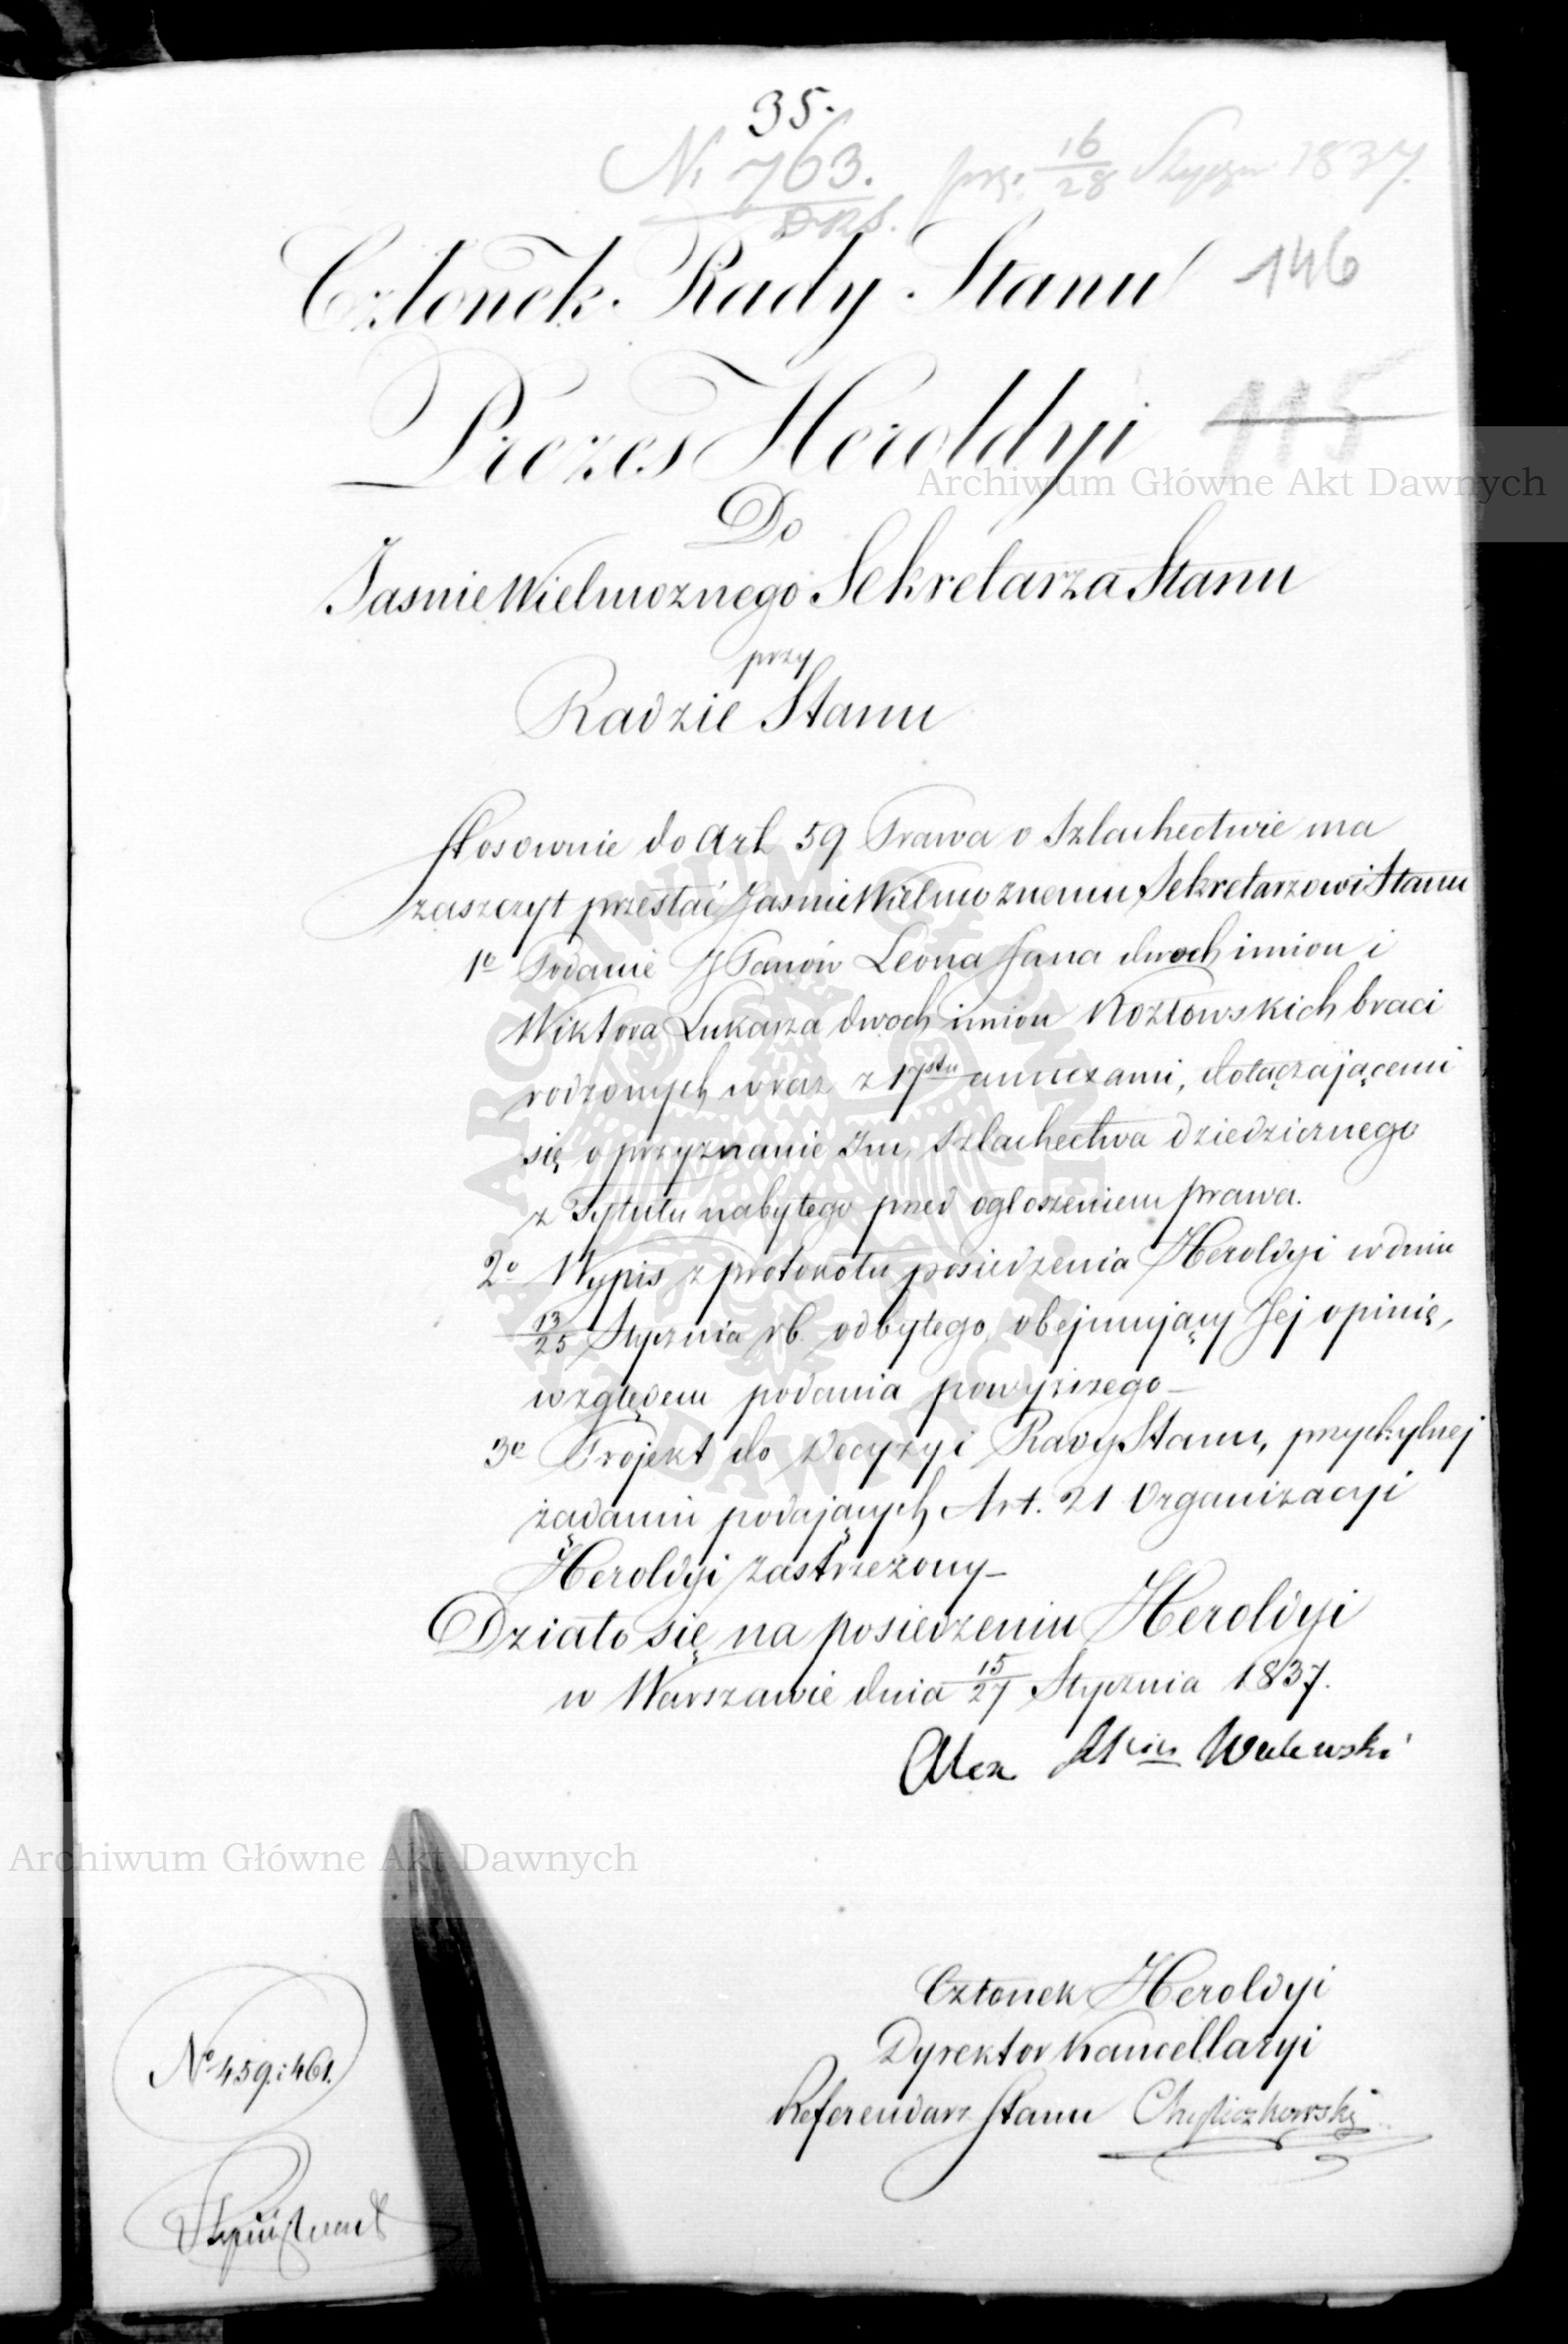 35.
N. 763. prz: 16/28 Stycznia 1837.
D.R.S.
Członek Rady Stanu 146
Prezes Heroldyi 115
Archiwum Główne Akt Dawnych
Do
JasnieWielmoznego Sekretarza Stanu
przy
Radzie Stanu
Stosownie do Art 59 Prawa o Szlachectwie ma
zaszczyt przesłać JasnieWielmoznemu Sekretarzowi Stanu
1o Podanie J Panów Leona Jana dwoch imion i
Wiktora Lukasza dwoch imion Kozłowskich braci
rodzonych wraz z 17stu annexami,
się o przyznanie Im Szlachectwa dziedzicznego
z Tytułu nabytego przed ogłoszeniem prawa.
2o Wypis z protokołu posiedzenia Heroldyi w dniu
13/25 Stycznia rb. odbytego, obejmujący Jej opinię,
względem podania powyższego –
3o Projekt do Decyzyi Rady Stanu, przychylnej
żądaniu podających Art. 21 Organizacyi
Heroldyi zastrzeżony –
Działo się na posiedzeniu Heroldyi
w Warszawie dnia 15/27 Stycznia 1837.
Alex Walewski
Archiwum Główne Akt Dawnych
Członek Heroldyi
Dyrektor Kancellaryi
Referendarz Stanu
No 459. i 461.
ARCHIWUM GŁÓWNE AKT DAWNYCH